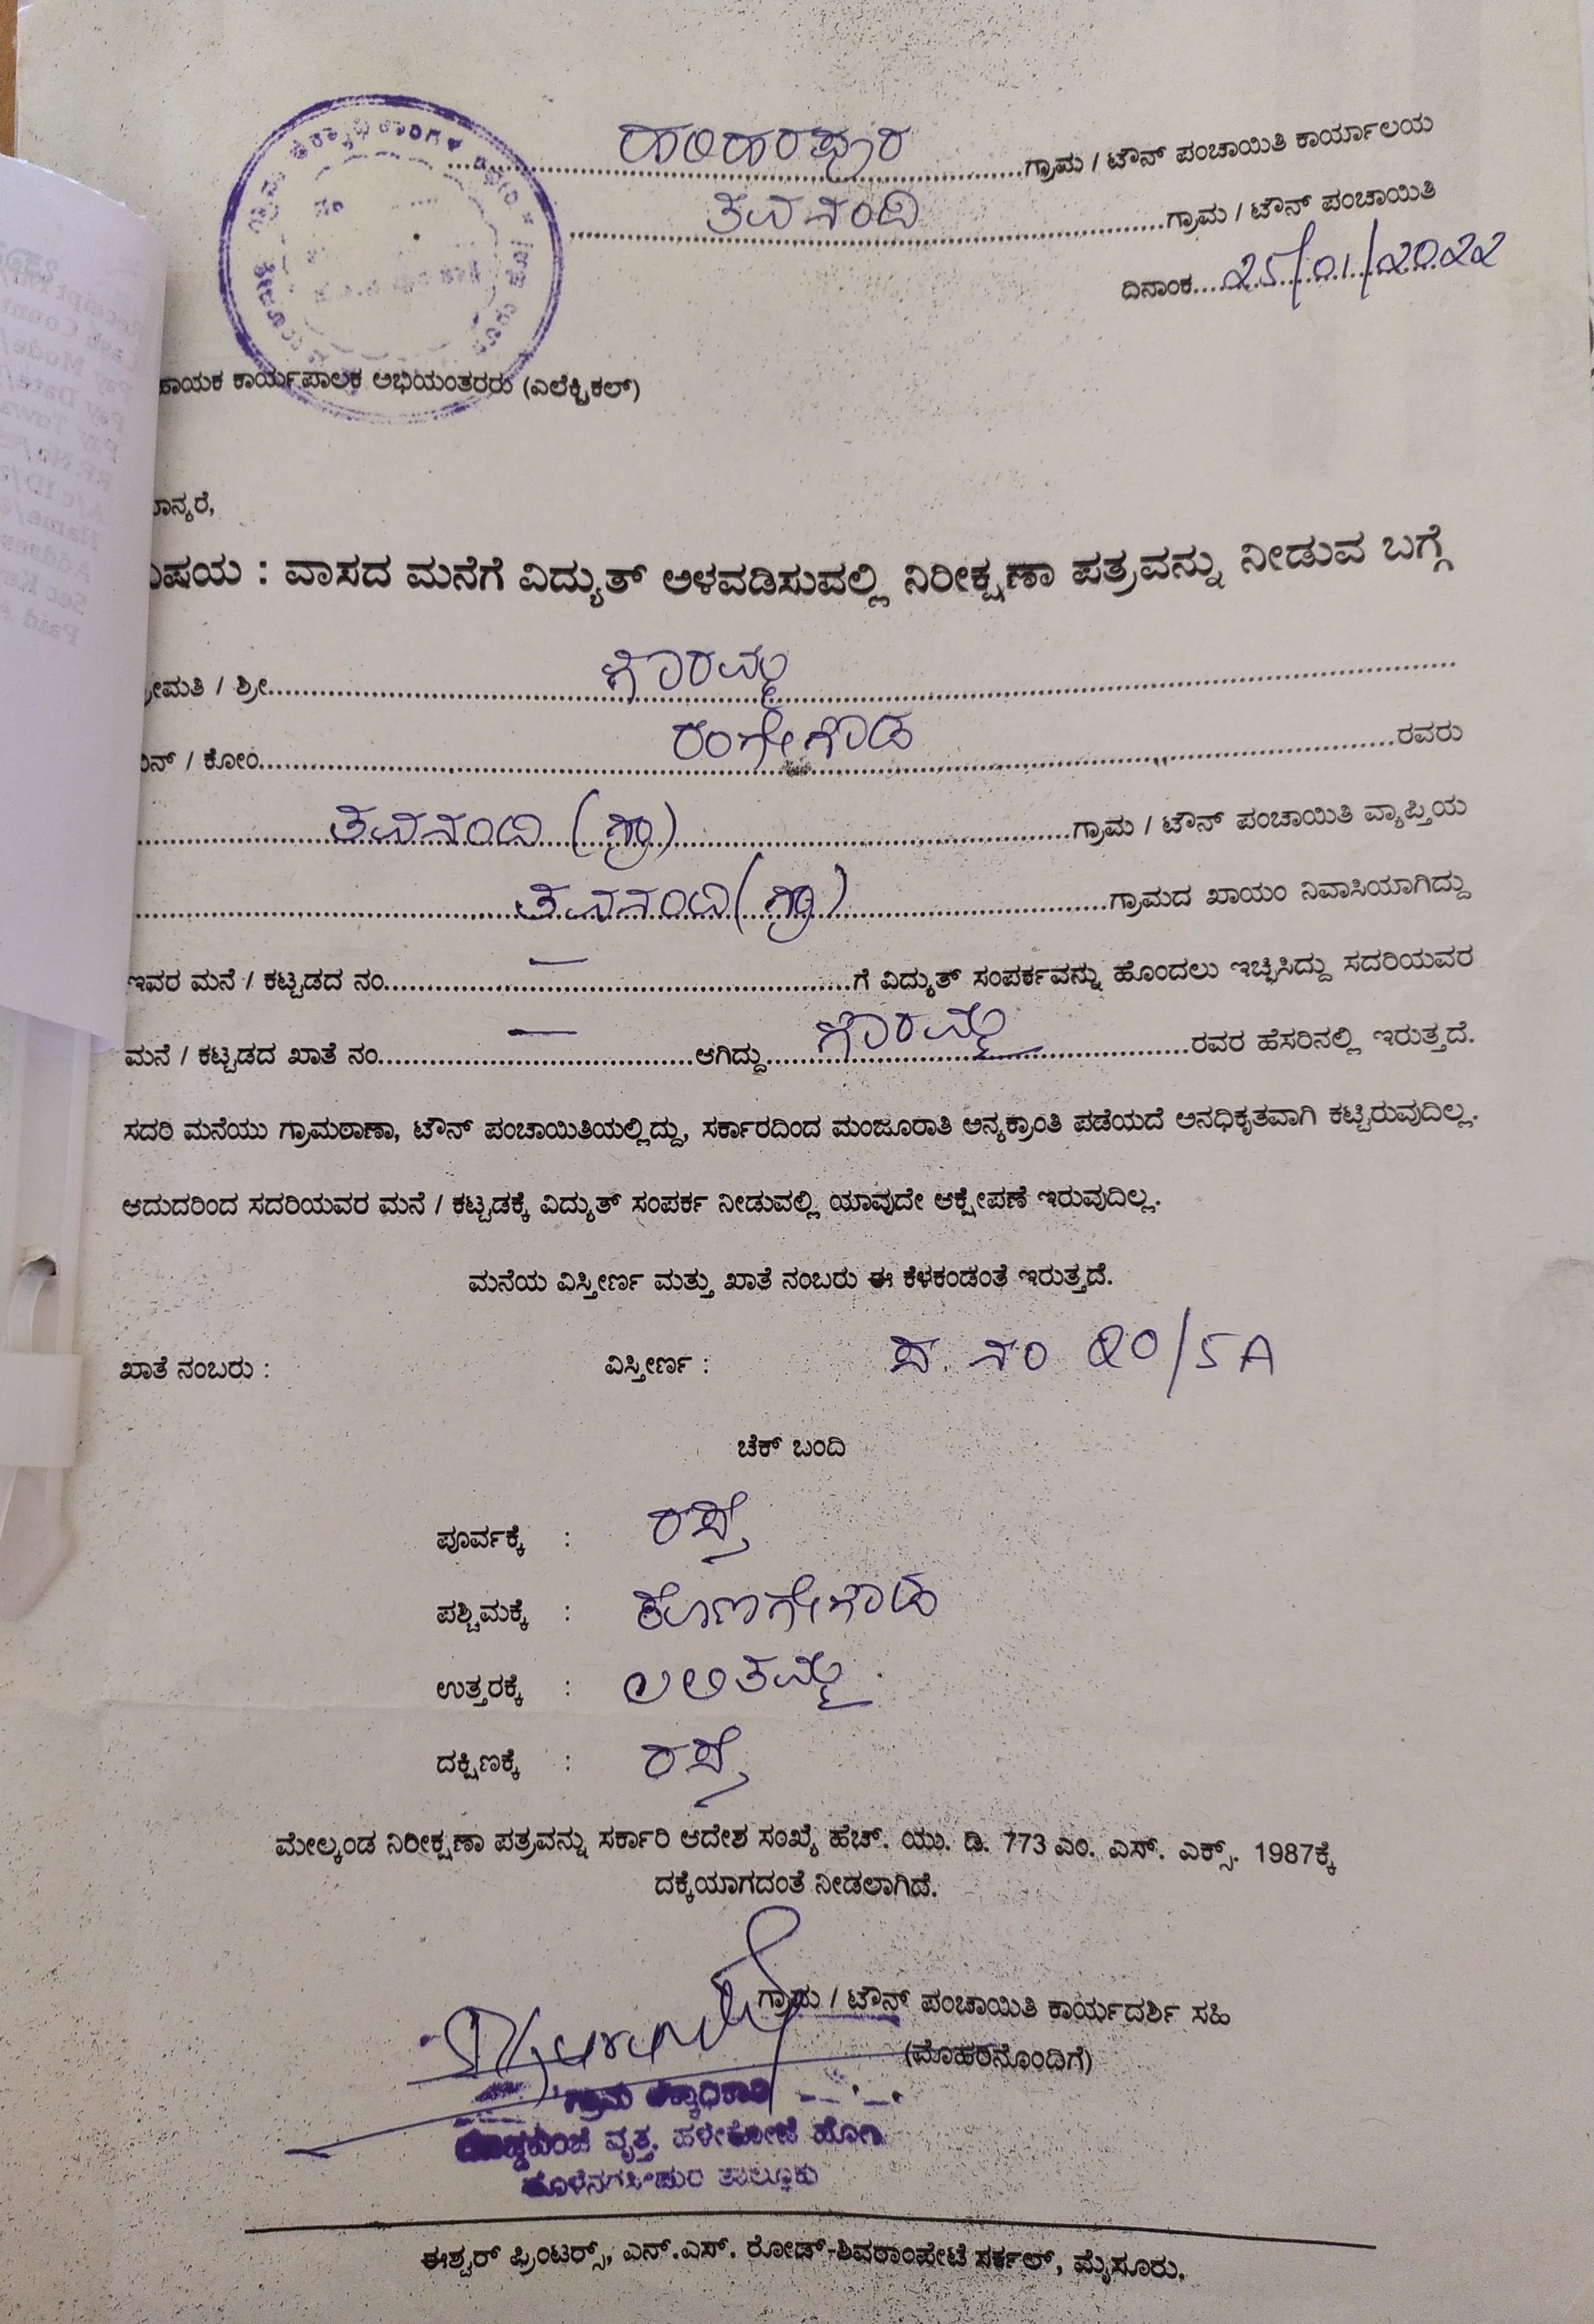 ಹರಿಹರಪುರ ಗ್ರಾಮ / ಟೌನ್ ಪಂಚಾಯಿತಿ ಕಾರ್ಯಾಲಯ
ತವನಂದಿ ಗ್ರಾಮ / ಟೌನ್ ಪಂಚಾಯಿತಿ
ದಿನಾಂಕ 25/01/2022
ಕಾರ್ಯಪಾಲಕ ಅಭಿಯಂತರರು (ಎಲೆಕ್ಟ್ರಿಕಲ್)
ಾನ್ಯರೆ,
ಷಯ : ವಾಸದ ಮನೆಗೆ ವಿದ್ಯುತ್ ಅಳವಡಿಸುವಲ್ಲಿ ನಿರೀಕ್ಷಣಾ ಪತ್ರವನ್ನು ನೀಡುವ ಬಗ್ಗೆ
ೀಮತಿ / ಶ್ರೀ ಗೌರಮ್ಮ
ನ್ / ಕೋಂ ರಂಗೇಗೌಡ ರವರು
ತವನಂದಿ (ಗ್ರಾ) ಗ್ರಾಮ / ಟೌನ್ ಪಂಚಾಯಿತಿ ವ್ಯಾಪ್ತಿಯ
ತವನಂದಿ (ಗ್ರಾ) ಗ್ರಾಮದ ಖಾಯಂ ನಿವಾಸಿಯಾಗಿದ್ದು
ಇವರ ಮನೆ / ಕಟ್ಟಡದ ನಂ. — ಗೆ ವಿದ್ಯುತ್ ಸಂಪರ್ಕವನ್ನು ಹೊಂದಲು ಇಚ್ಛಿಸಿದ್ದು ಸದರಿಯವರ
ಮನೆ / ಕಟ್ಟಡದ ಖಾತೆ ನಂ. — ಆಗಿದ್ದು ಗೌರಮ್ಮ ರವರ ಹೆಸರಿನಲ್ಲಿ ಇರುತ್ತದೆ.
ಸದರಿ ಮನೆಯು ಗ್ರಾಮಠಾಣಾ, ಟೌನ್ ಪಂಚಾಯಿತಿಯಲ್ಲಿದ್ದು, ಸರ್ಕಾರದಿಂದ ಮಂಜೂರಾತಿ ಅನ್ಯಕ್ರಾಂತಿ ಪಡೆಯದೆ ಅನಧಿಕೃತವಾಗಿ ಕಟ್ಟಿರುವುದಿಲ್ಲ.
ಆದುದರಿಂದ ಸದರಿಯವರ ಮನೆ / ಕಟ್ಟಡಕ್ಕೆ ವಿದ್ಯುತ್ ಸಂಪರ್ಕ ನೀಡುವಲ್ಲಿ ಯಾವುದೇ ಆಕ್ಷೇಪಣೆ ಇರುವುದಿಲ್ಲ.
ಮನೆಯ ವಿಸ್ತೀರ್ಣ ಮತ್ತು ಖಾತೆ ನಂಬರು ಈ ಕೆಳಕಂಡಂತೆ ಇರುತ್ತದೆ.
ಖಾತೆ ನಂಬರು : ವಿಸ್ತೀರ್ಣ : ಸ. ನಂ 20/5A
ಚೆಕ್ ಬಂದಿ
ಪೂರ್ವಕ್ಕೆ : ರಸ್ತೆ
ಪಶ್ಚಿಮಕ್ಕೆ :
ಉತ್ತರಕ್ಕೆ : ಲಲಿತಮ್ಮ
ದಕ್ಷಿಣಕ್ಕೆ : ರಸ್ತೆ
ಮೇಲ್ಕಂಡ ನಿರೀಕ್ಷಣಾ ಪತ್ರವನ್ನು ಸರ್ಕಾರಿ ಆದೇಶ ಸಂಖ್ಯೆ ಹೆಚ್. ಯು. ಡಿ. 773 ಎಂ. ಎಸ್. ಎಕ್ಸ್. 1987ಕ್ಕೆ
ದಕ್ಕೆಯಾಗದಂತೆ ನೀಡಲಾಗಿದೆ.
ಗ್ರಾಮ / ಟೌನ್ ಪಂಚಾಯಿತಿ ಕಾರ್ಯದರ್ಶಿ ಸಹಿ
(ಮೊಹರನೊಂದಿಗೆ)
ಗ್ರಾಮ ಲೆಕ್ಕಾಧಿಕಾರಿ
ವೃತ್ತ, ಹಳೇಕೋಟೆ ಹೋಬಳಿ
ಹೊಳೆನರಸೀಪುರ ತಾಲ್ಲೂಕು
ಈಶ್ವರ್ ಪ್ರಿಂಟರ್ಸ್, ಎನ್.ಎಸ್. ರೋಡ್-ಶಿವರಾಂಪೇಟೆ ಸರ್ಕಲ್, ಮೈಸೂರು.